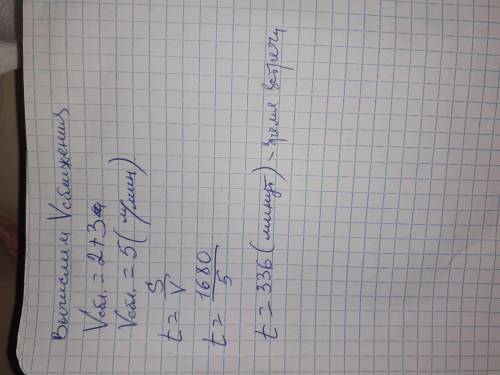 Вычислим Vсближения
Vсбл. = 2+3
Vсбл. = 5 (м/мин)
t = S/V
t = 1680/5
t = 336 (минут) - время встречи